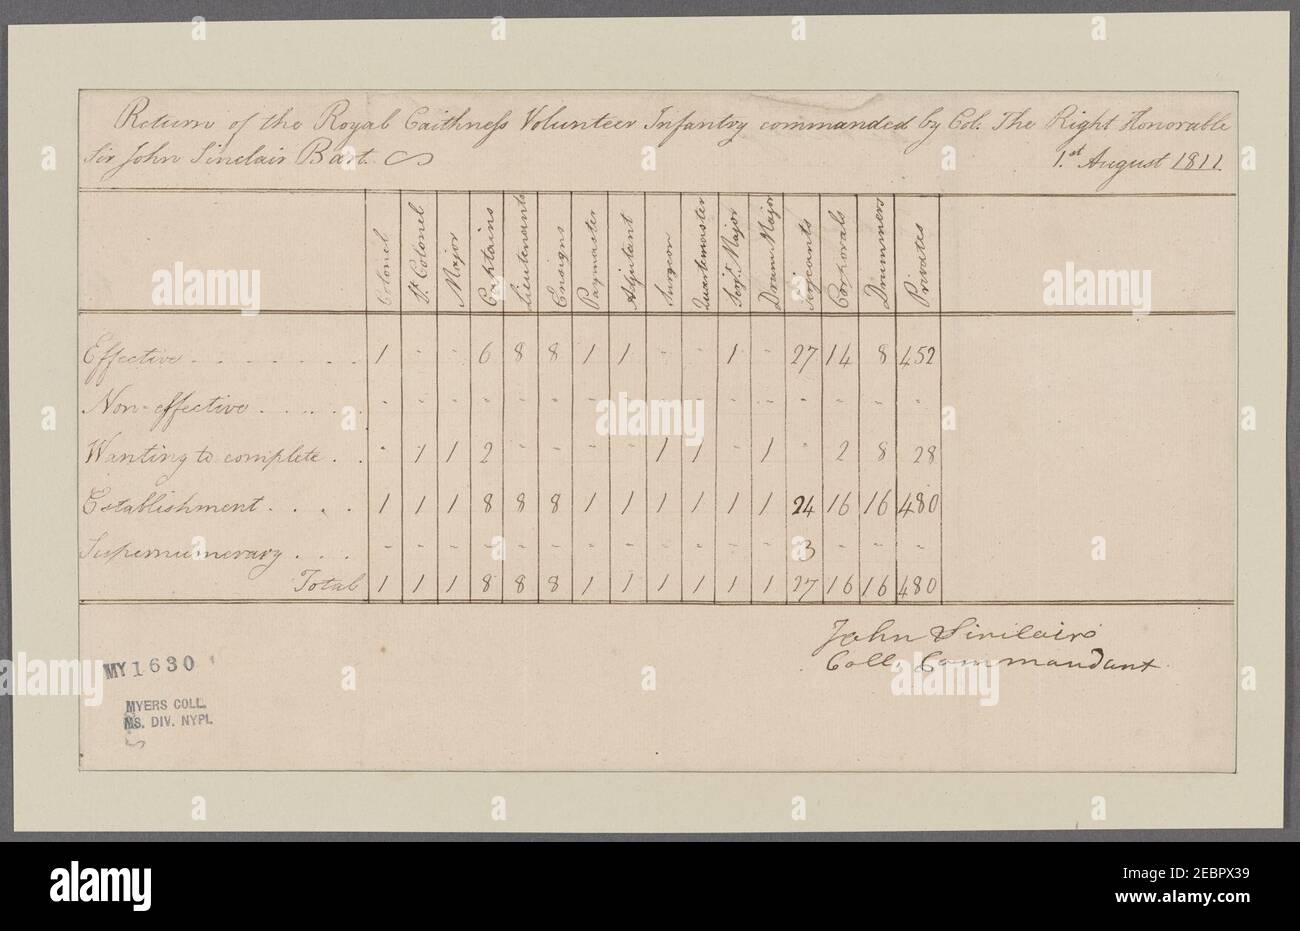 Return of the Royal Caithness Volunteer Infantry commanded by Col. The Right Honorable
Sir John Sinclair Bart. 1.st August 1811
Colonel Lt. Colonel Major Captains Lieutenants Ensigns Paymaster Adjutant Surgeon Quartermaster Serjt. Major Drum Major Serjeants Corporals Drummers Privates
Effective . . . . . . . 1 - - 6 8 8 1 1 - - 1 - 27 14 8 452
Non-effective . . . . . - - - - - - - - - - - - - - - -
Wanting to complete . . - 1 1 2 - - - - 1 1 - 1 - 2 8 28
Establishment . . . . 1 1 1 8 8 8 1 1 1 1 1 1 24 16 16 480
Supernumerary . . . - - - - - - - - - - - - 3 - - -
Total 1 1 1 8 8 8 1 1 1 1 1 1 27 16 16 480
John Sinclair
Coll. Commandant
MY1630
MYERS COLL.
MS. DIV. NYPL
alamy
alamy
alamy
alamy
Image ID: 2EBPX39
www.alamy.com